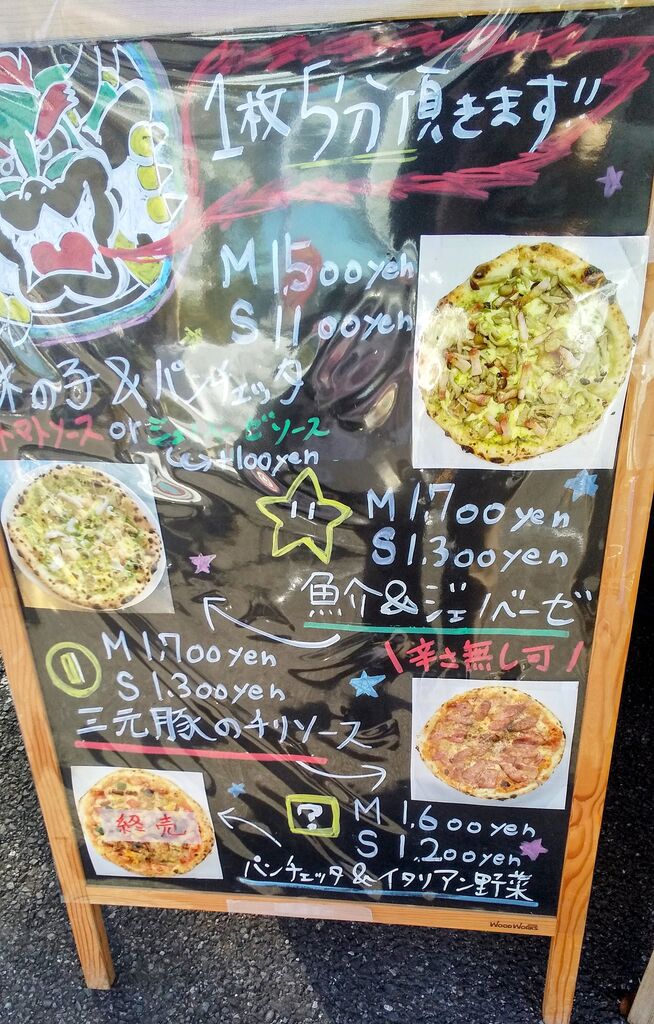 1枚5分頂きます"
M 1,500yen
S 1,100yen
の子&パンチェッタ
トマトソース or ジェノベーゼソース
+100yen
M 1,700yen
S 1,300yen
魚介&ジェノベーゼ
\辛さ無し可/
M 1,700yen
S 1,300yen
三元豚のチリソース
?
M 1,600yen
S 1,200yen
終売
パンチェッタ&イタリアン野菜
WOODWORKS